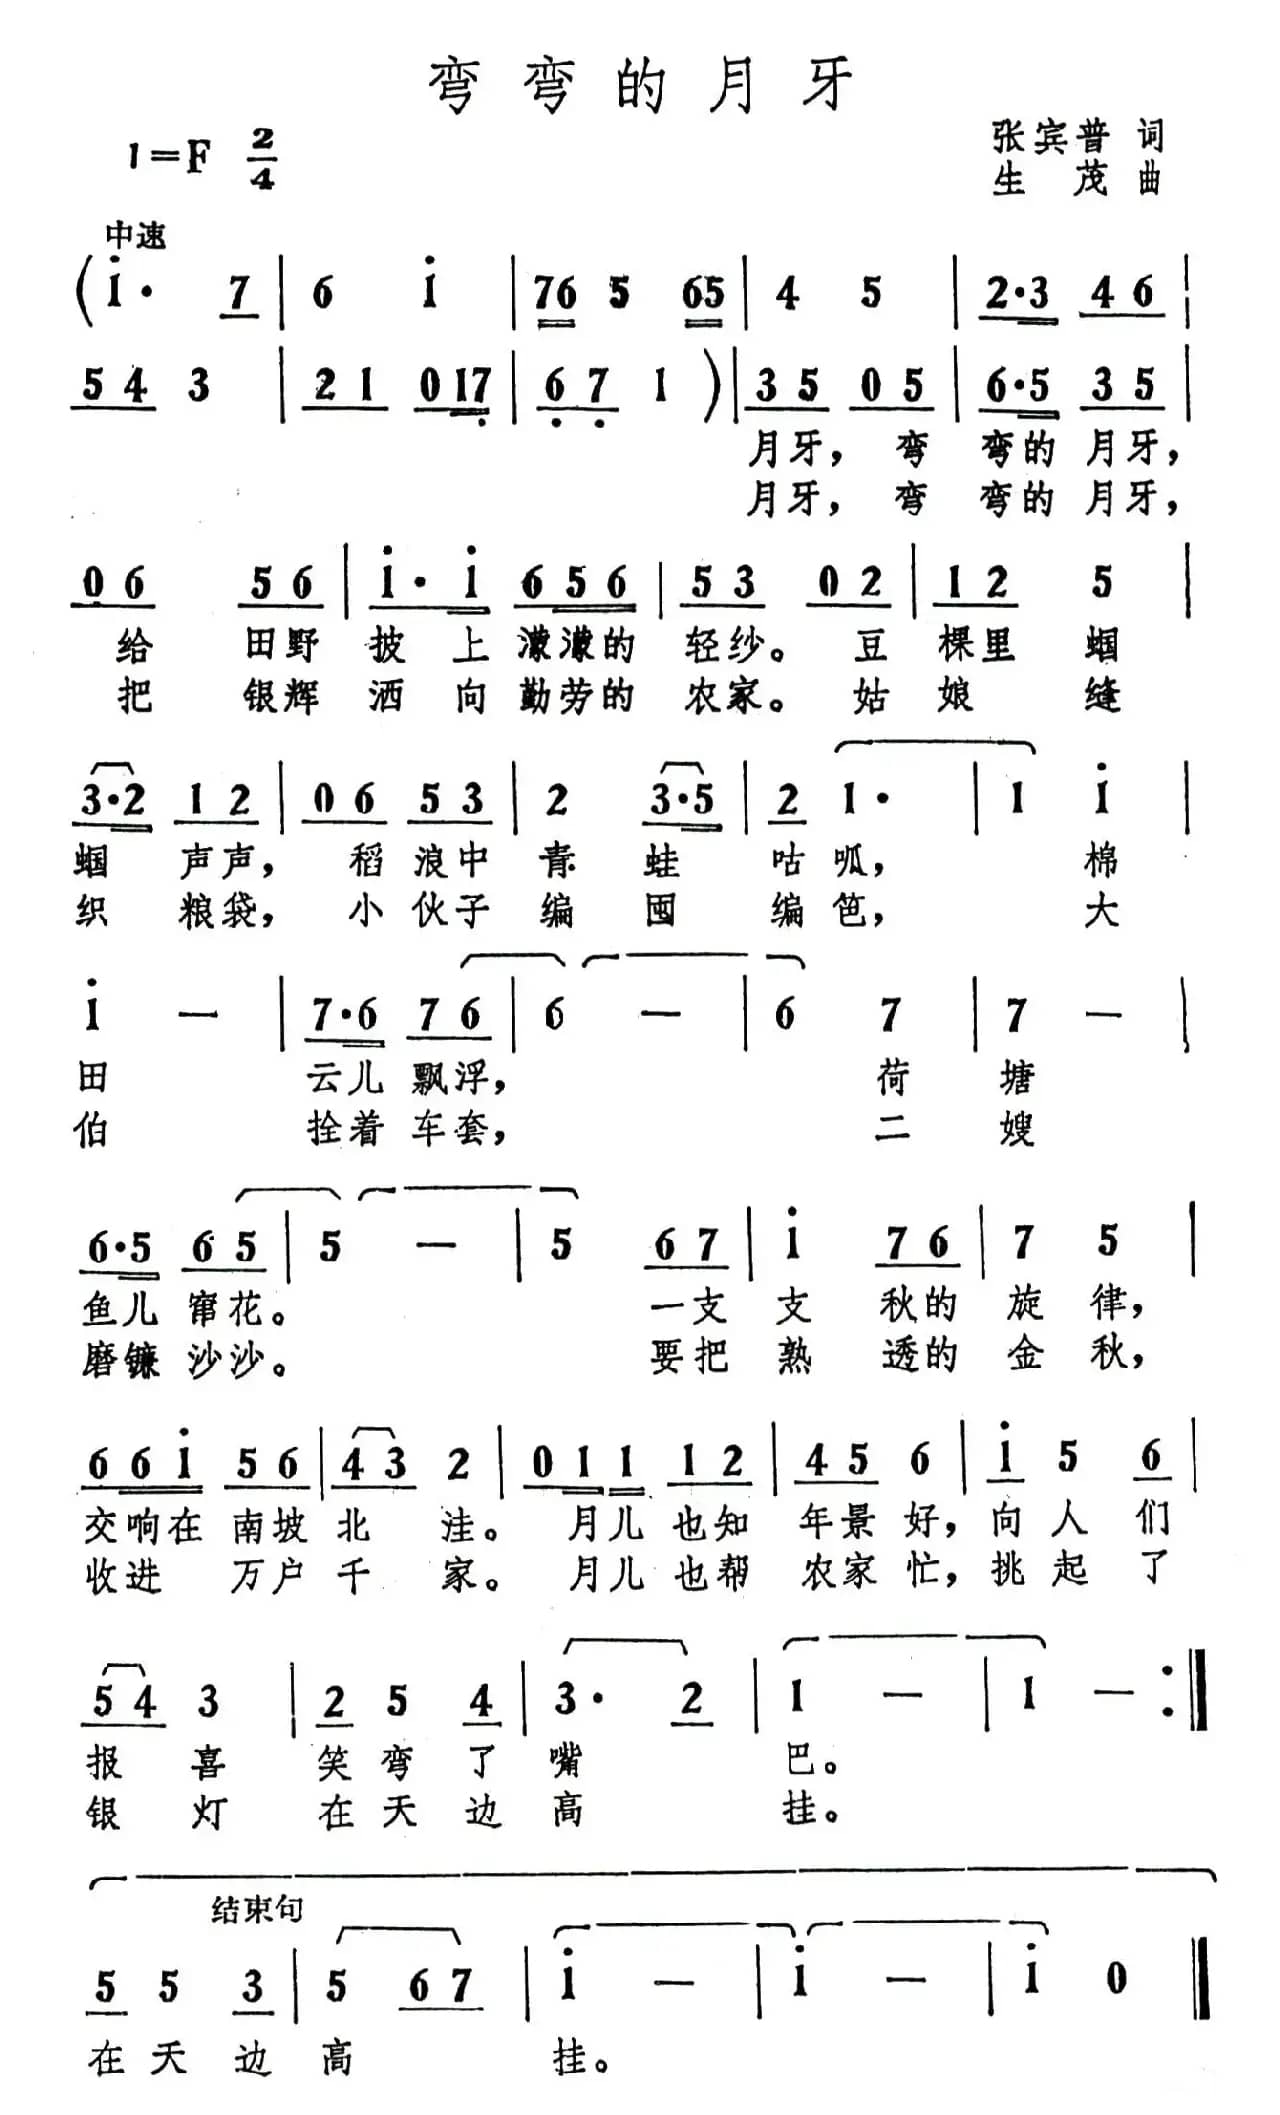 弯弯的月牙
1=F 2/4
张宾普 词
生茂 曲
中速
( i· 7 | 6 i | 76 5 65 | 4 5 | 2·3 4 6 |
5 4 3 | 2 1 0 17 | 6 7 1 ) | 3 5 0 5 | 6·5 3 5 |
月牙, 弯 弯的 月牙,
月牙, 弯 弯的 月牙,
0 6 5 6 | i· i 6 5 6 | 5 3 0 2 | 1 2 5 |
给 田野 披 上 濛濛的 轻纱。 豆 棵里 蝈
把 银辉 洒 向 勤劳的 农家。 姑 娘 缝
3·2 1 2 | 0 6 5 3 | 2 3·5 | 2 1· | 1 i |
蝈 声声, 稻 浪中 青 蛙 咕 呱, 棉
织 粮袋, 小 伙子 编 囤 编 笆, 大
i — | 7·6 7 6 | 6 — | 6 7 | 7 — |
田 云儿 飘浮, 荷 塘
伯 拴着 车套, 二 嫂
6·5 6 5 | 5 — | 5 6 7 | i 7 6 | 7 5 |
鱼儿 窜花。 一支 支 秋的 旋 律,
磨镰 沙沙。 要把 熟 透的 金 秋,
6 6 i 5 6 | 4 3 2 | 0 1 1 1 2 | 4 5 6 | i 5 6 |
交响在 南坡 北 洼。 月儿 也知 年景 好, 向 人 们
收进 万户 千 家。 月儿 也帮 农家 忙, 挑 起 了
5 4 3 | 2 5 4 | 3· 2 | 1 — | 1 — :‖
报 喜 笑 弯 了 嘴 巴。
银 灯 在 天 边 高 挂。
结束句
5 5 3 | 5 6 7 | i — | i — | i 0 ‖
在 天 边 高 挂。